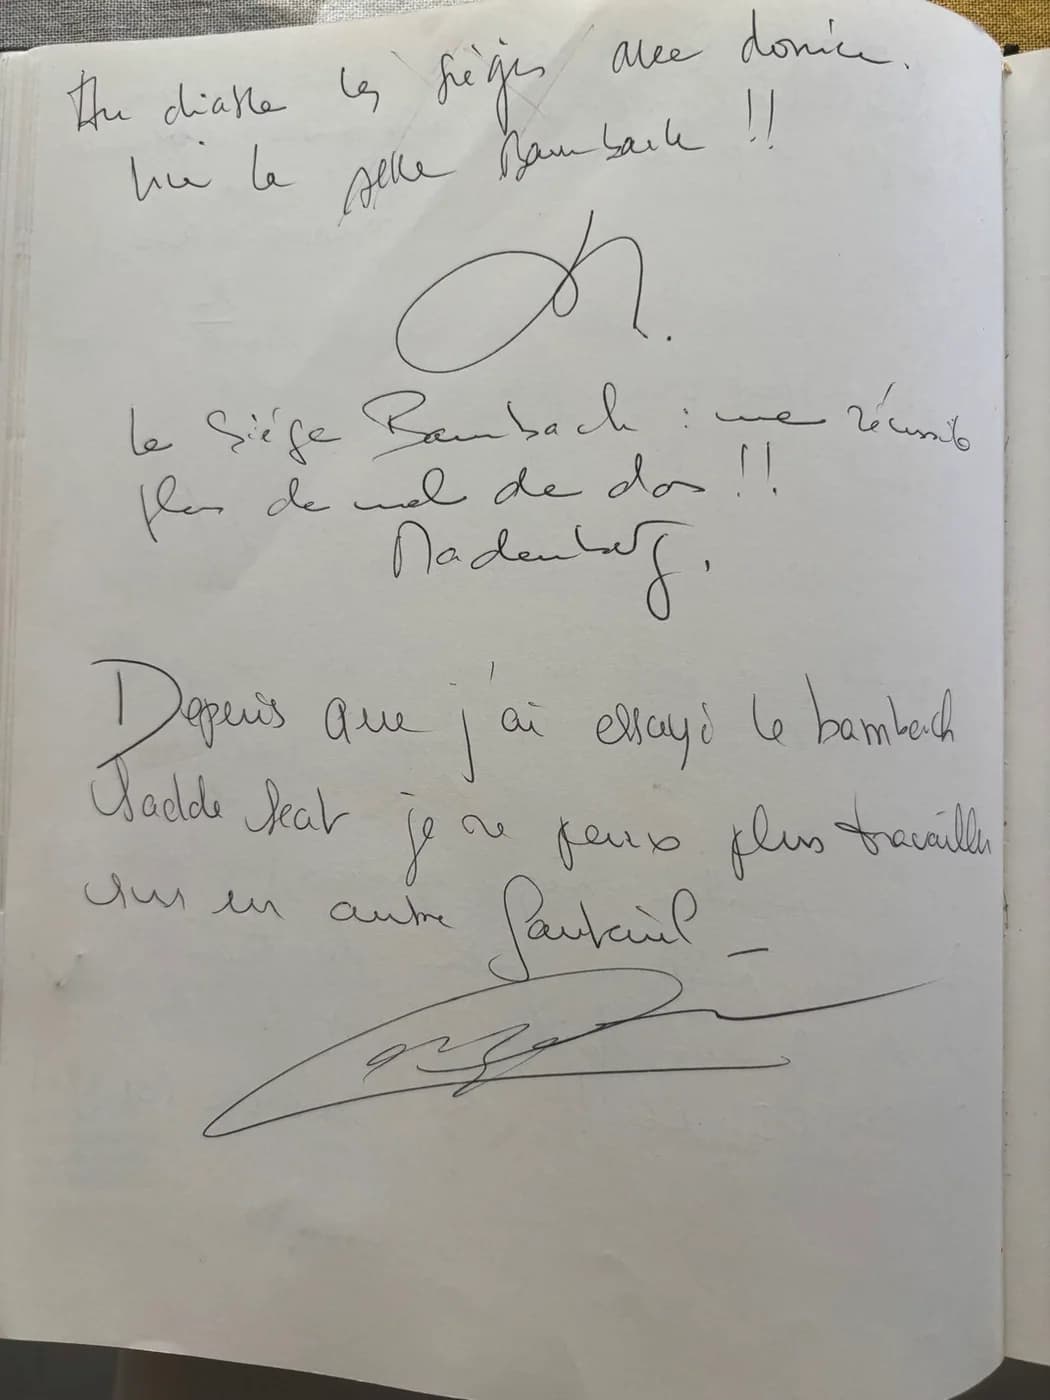 Au diable les sièges avec dossier.
Vive la selle Bambach !!
Le Siège Bambach : une réussite
plus de mal de dos !!
Depuis que j'ai essayé le bambach
Sadde Seat je ne peux plus travailler
sur un autre fauteuil _